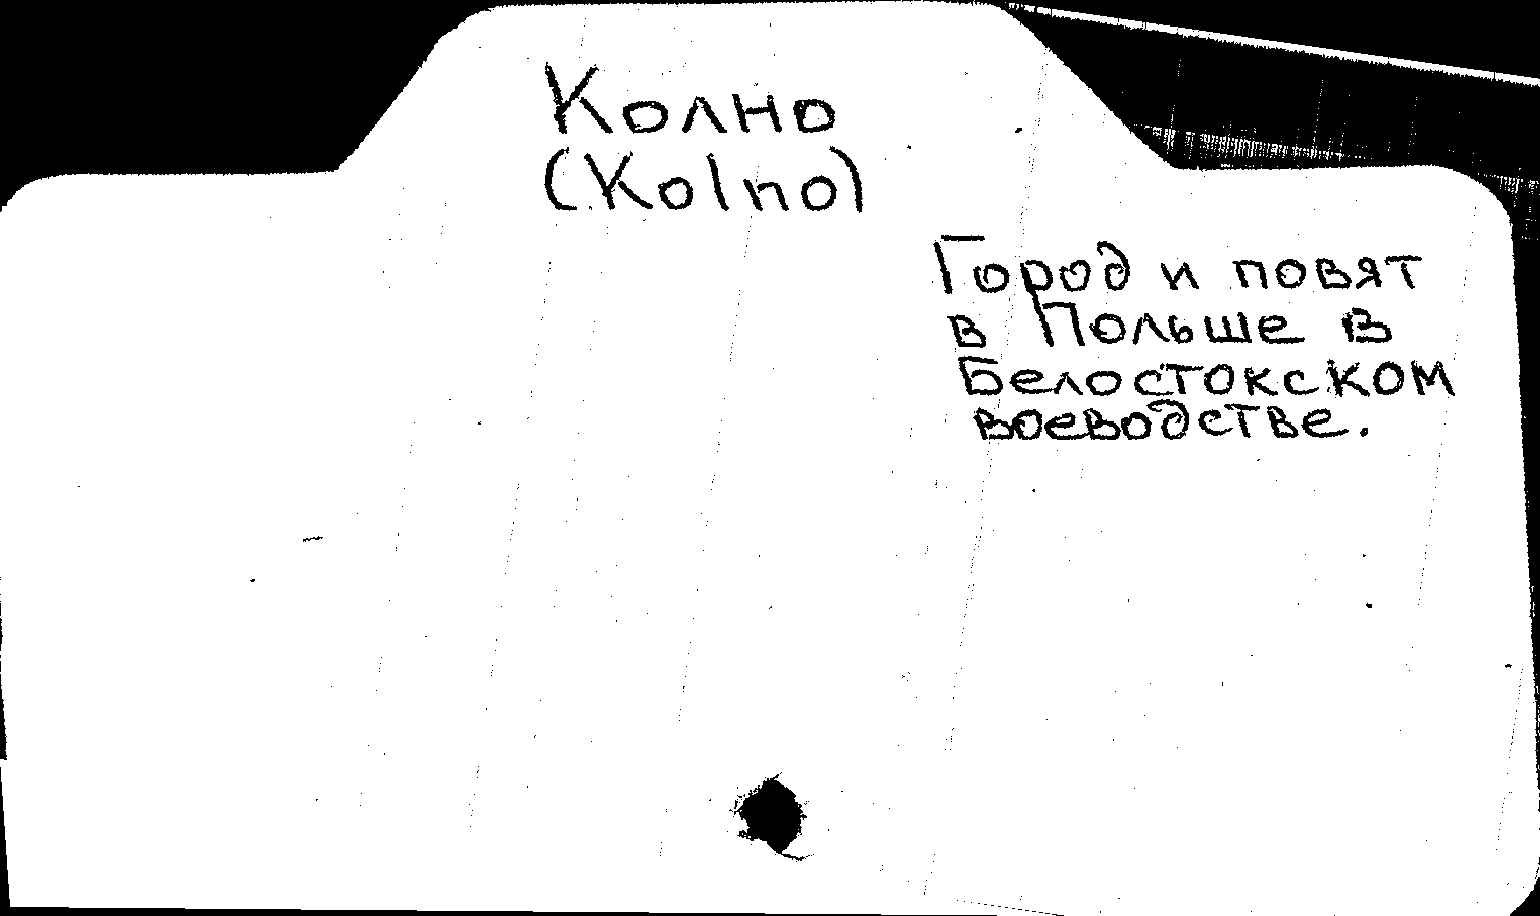 Колно
(Kolno)
Город и повят
в Польше в
Белостокском
воеводстве.